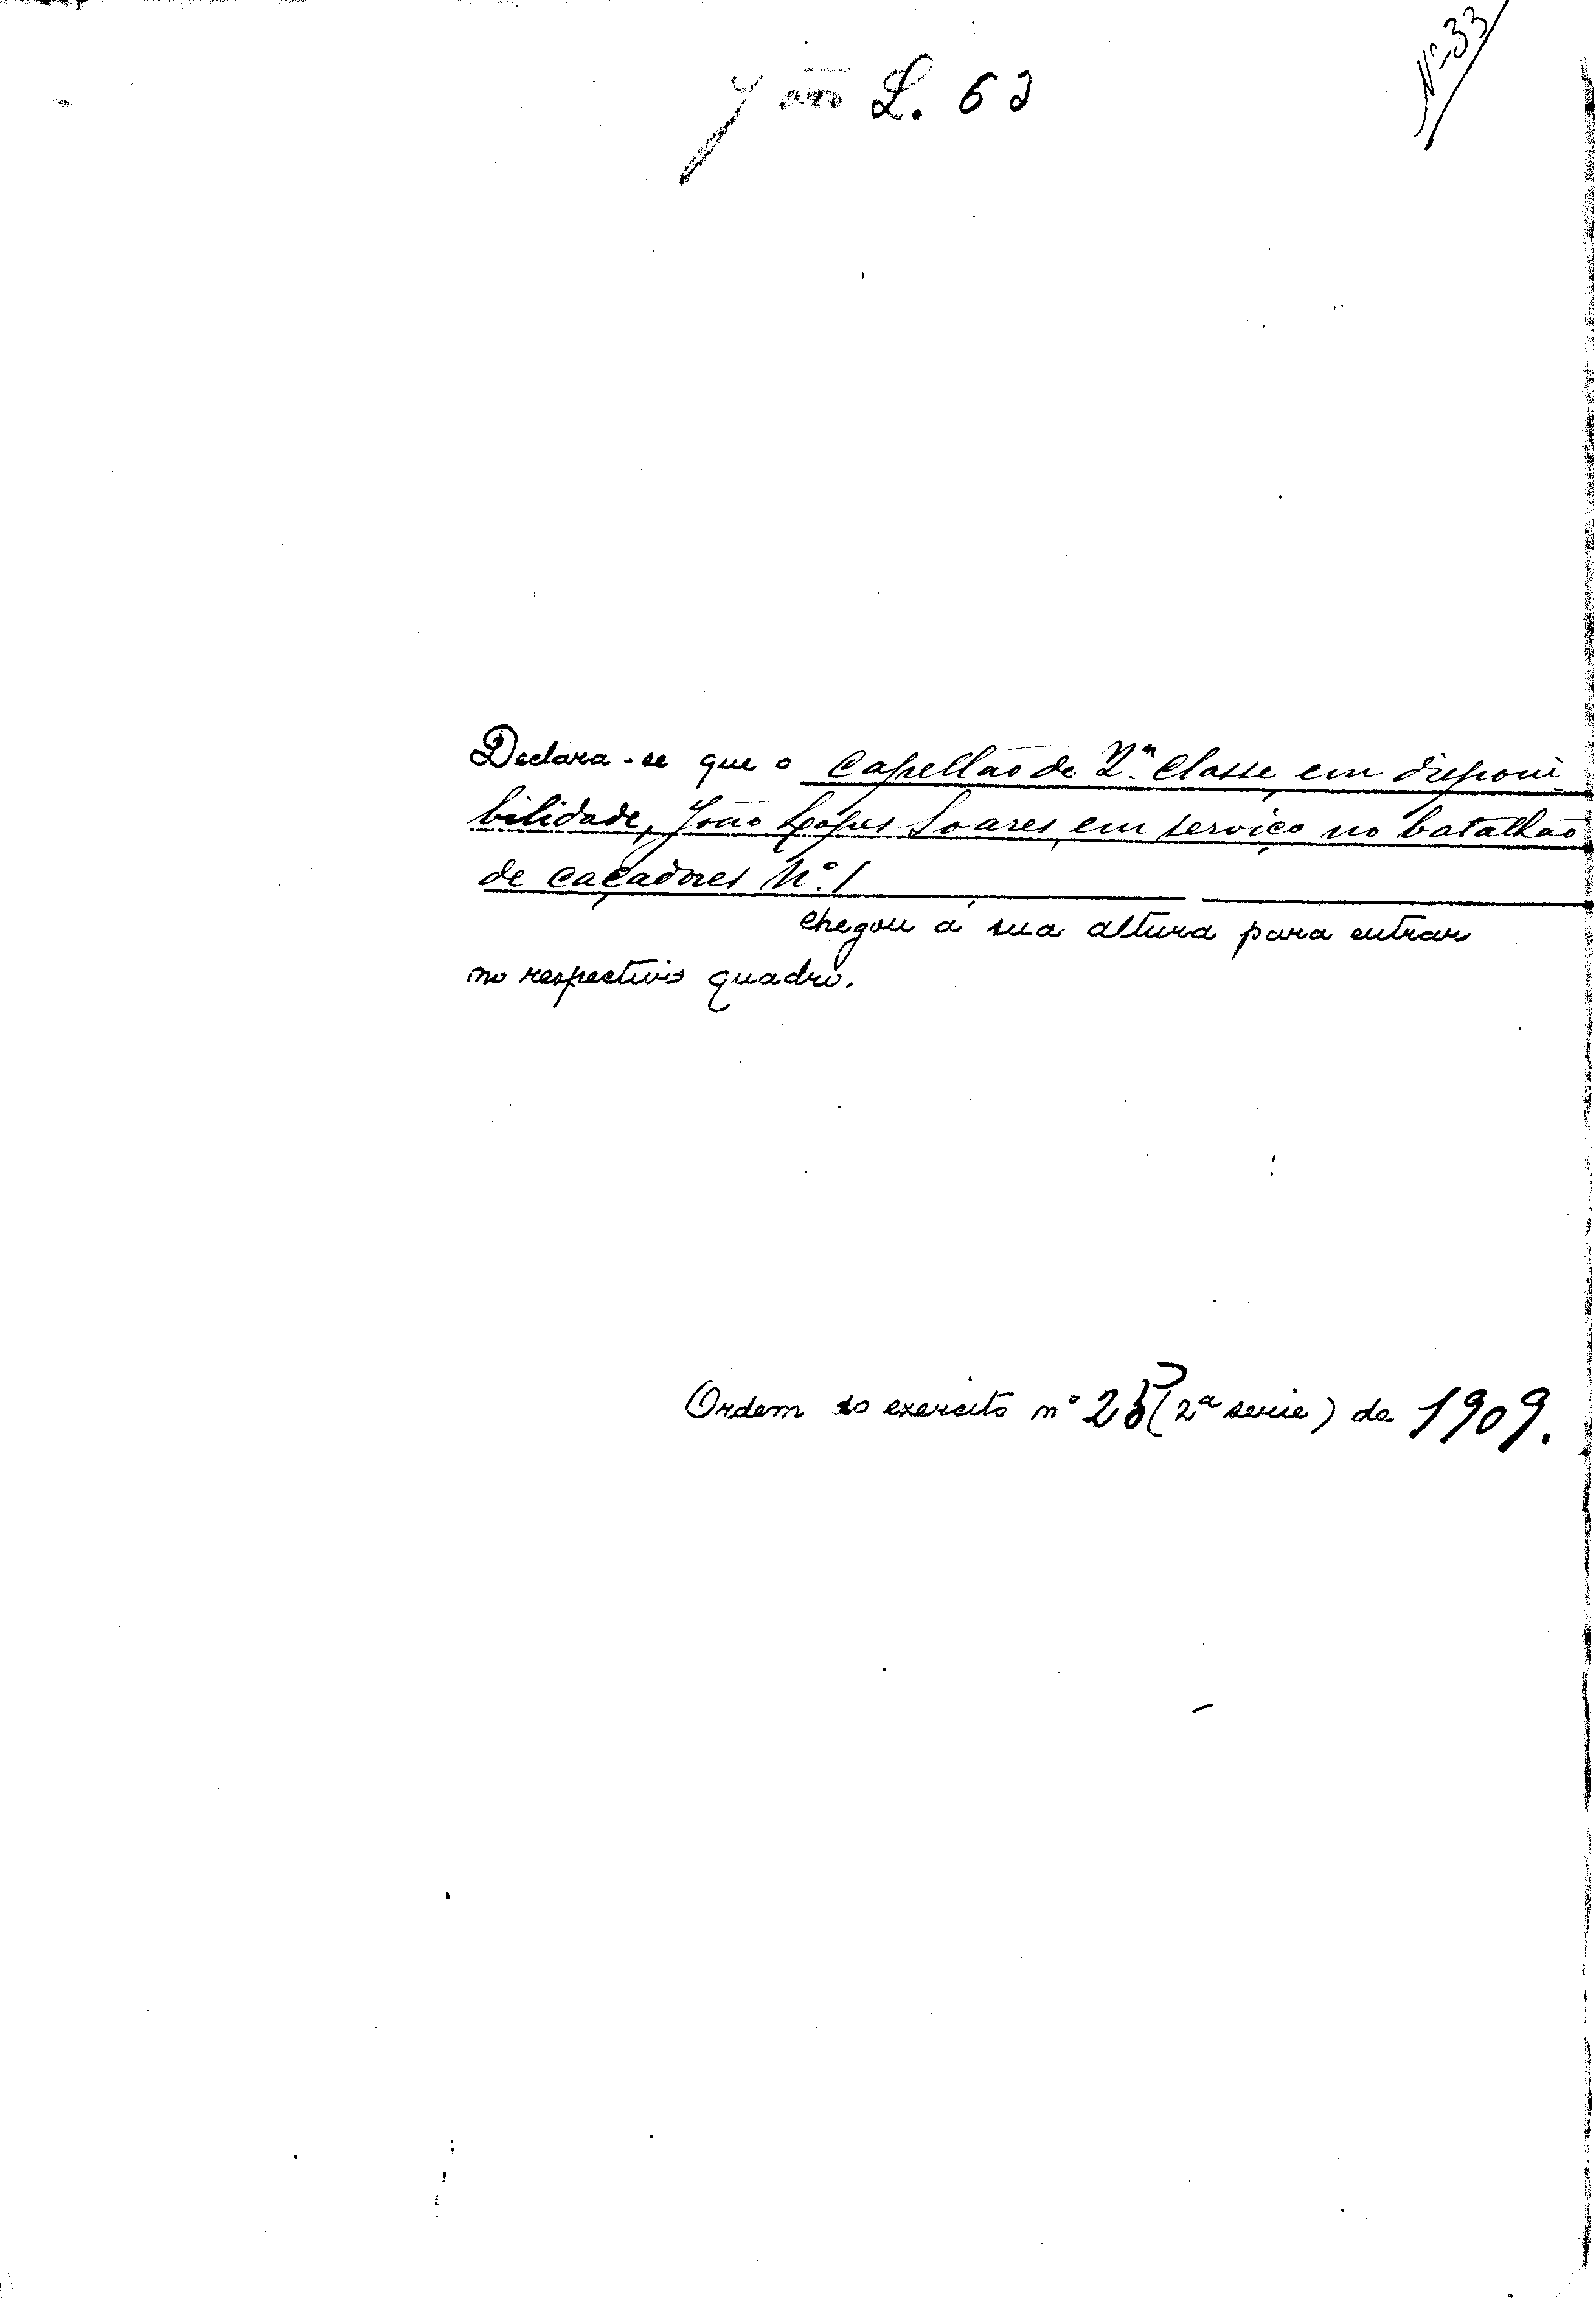 Nº 33
João L. 63
Declara-se que o Capellão de 2.ª Classe, em disponi-
bilidade, João Lopes Soares, em serviço no batalhão
de caçadores N.º 1
chegou á sua altura para entrar
no respectivo quadro.
Ordem do exercito nº 25 (2ª serie) de 1909.